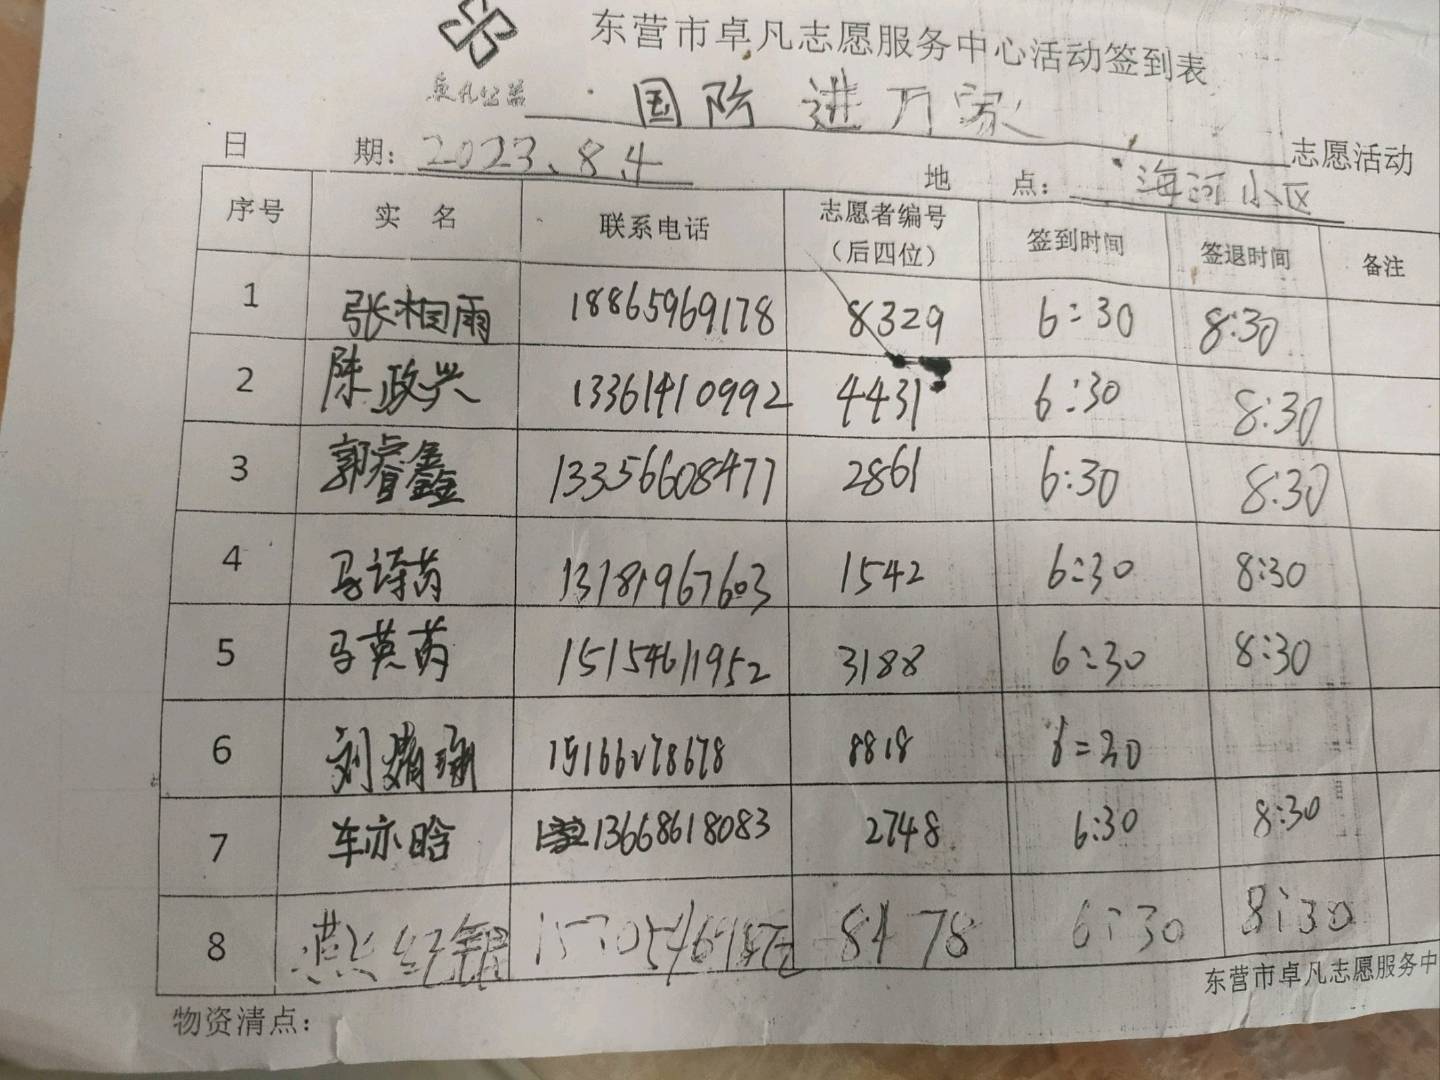 东营市卓凡志愿服务中心活动签到表
卓凡公益
国防进万家 志愿活动
日期：2023.8.4 地点：海河小区
序号 实名 联系电话 志愿者编号（后四位） 签到时间 签退时间 备注
1 张相雨 18865969178 8329 6:30 8:30
2 陈政兴 13361410992 4431 6:30 8:30
3 郭睿鑫 13356608477 2861 6:30 8:30
4 马诗芮 13181967603 1542 6:30 8:30
5 马英芮 15154611952 3188 6:30 8:30
6 刘婧 15166278678 8818 6:30
7 车亦晗 13668618083 2748 6:30 8:30
8 燕 8478 6:30 8:30
东营市卓凡志愿服务中
物资清点：